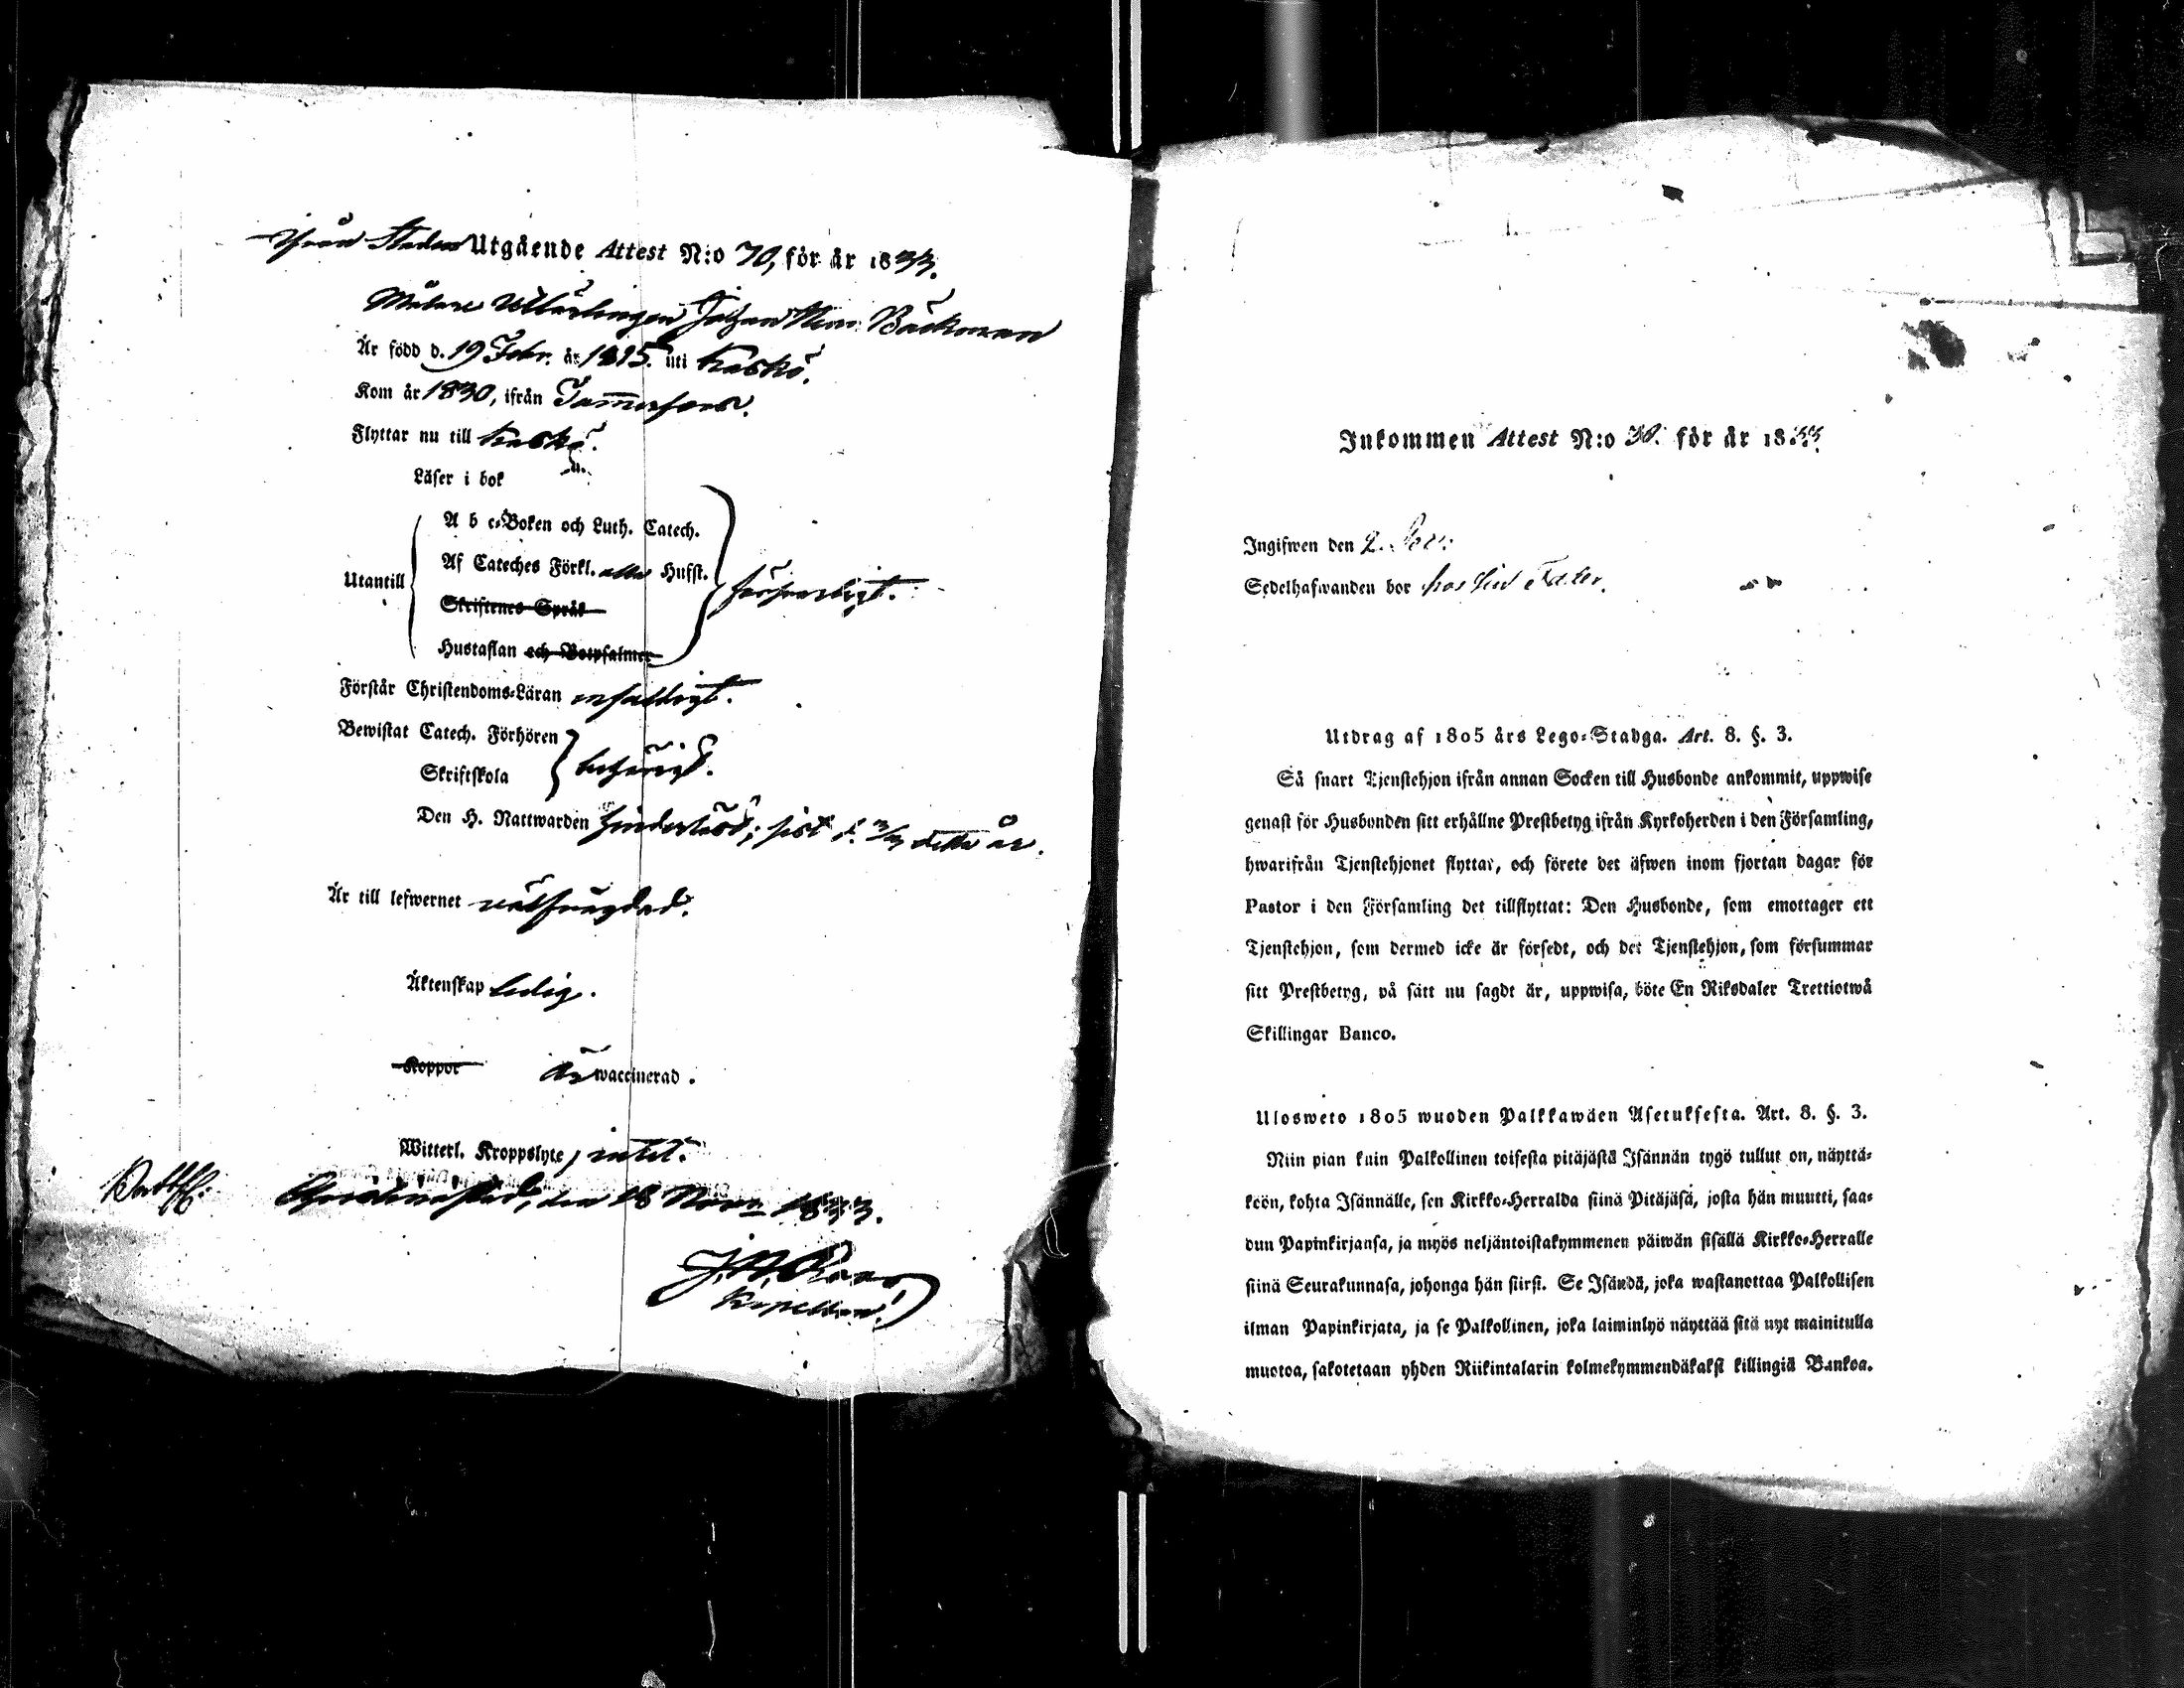 ifrån Staden Utgående Attest N:o 70, för år 1833.
Målare Utlärlingen Johan Backman
Är född d. 19 Febr. år 1815. uti Kaskö.
Kom år 1830, ifrån Tammerfors.
Flyttar nu till Kaskö.
Läser i bok
A b c-Boken och Luth. Catech.
Af Cateches Förkl. alla Hufst.
Utantill försvarligt.
Skriftenes Språk
Hustaflan och Botpsalmer
Förstår Christendoms-Läran enfaldigt.
Bewistat Catech. Förhören
Skriftskola behörigt.
Den H. Nattwarden hinderslös; sist d. detta år.
Är till lefwernet välfrägdad.
Äktenskap ledig.
Koppor är waccinerad.
Witterl. Kroppslyte, intet.
Christinestad, den 18 Novr 1833.
Kapellan.
Inkommen Attest N:o 30. för år 1833.
Ingifwen den 2.
Sedelhafwanden bor hos sin Fader.
Utdrag af 1805 års Lego-Stadga. Art. 8. §. 3.
Så snart Tjenstehjon ifrån annan Socken till Husbonde ankommit, uppwise
genast för Husbonden sitt erhållne Prestbetyg ifrån Kyrkoherden i den Församling,
hwarifrån Tjenstehjonet flyttat, och förete det äfwen inom fjortan dagar för
Pastor i den Församling det tillflyttat: Den Husbonde, som emottager ett
Tjenstehjon, som dermed icke är försedt, och det Tjenstehjon, som försummar
sitt Prestbetyg, på sätt nu sagdt är, uppwisa, böte En Riksdaler Trettiotwå
Skillingar Banco.
Ulosweto 1805 wuoden Palkkawäen Asetuksesta. Art. 8. §. 3.
Niin pian kuin Palkollinen toisesta pitäjästä Isännän tygö tullut on, näyttä-
köön, kohta Isännälle, sen Kirkko-Herralda siinä Pitäjäsä, josta hän muutti, saa-
dun Papinkirjansa, ja myös neljäntoistakymmenen päiwän sisällä Kirkko-Herralle
siinä Seurakunnasa, johonga hän siirsi. Se Isändä, joka wastanottaa Palkollisen
ilman Papinkirjata, ja se Palkollinen, joka laiminlyö näyttää sitä nyt mainitulla
muotoa, sakotetaan yhden Riikintalarin kolmekymmendäkaksi killingiä Bankoa.